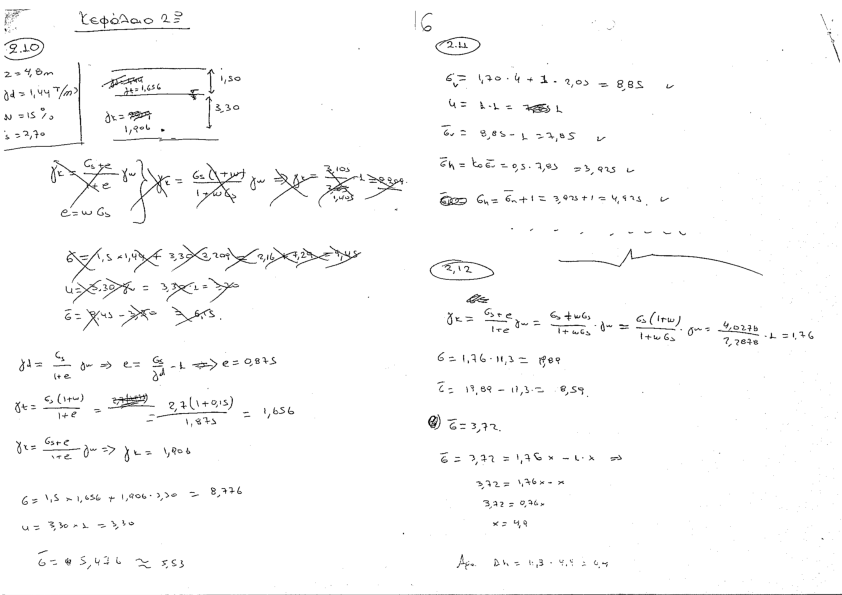 Κεφάλαιο 2º
2.10
z = 4,8m
γd = 1,44 T/m³
w = 15%
s = 2,70
γt = 1,656
1,50
γk =
1,906
3,30
γk = (Gs+e)/(1+e) γw
e = w Gs
γk = Gs(1+w)/(1+wGs) γw ⇒ γk =
σ = 1,5 × 1,44 + 3,30 · 2,209 = 2,16 + 7,29 = 9,45
u = 3,30 · γw = 3,30 · 1 = 3,30
σ̄ = 9,45 - 3,30 = 6,15
γd = Gs/(1+e) γw ⇒ e = Gs/γd - 1 ⇒ e = 0,875
γt = Gs(1+w)/(1+e) = 2,7(1+0,15)/1,875 = 1,656
γk = (Gs+e)/(1+e) γw ⇒ γk = 1,906
σ = 1,5 × 1,656 + 1,906 · 3,30 = 8,776
u = 3,30 × 1 = 3,30
σ̄ = 5,476 ≈ 5,53
16
2.11
σv = 1,70 · 4 + 1 · 2,05 = 8,85 ✓
u = 1 · 1 = 1
σ̄v = 8,85 - 1 = 7,85 ✓
σ̄h = k₀σ̄v = 0,5 · 7,85 = 3,925 ✓
σh = σ̄h + 1 = 3,925 + 1 = 4,925. ✓
2,12
γk = (Gs+e)/(1+e) γw = (Gs+wGs)/(1+wGs) · γw = Gs(1+w)/(1+wGs) · γw = 4,0276/2,2878 · 1 = 1,76
σ = 1,76 · 11,3 = 19,89
σ̄ = 19,89 - 11,3 = 8,59.
σ̄ = 3,72.
σ̄ = 3,72 = 1,76x - 1·x ⇒
3,72 = 1,76x - x
3,72 = 0,76x
x = 4,9
Άρα Δh = 11,3 - 4,9 = 6,4